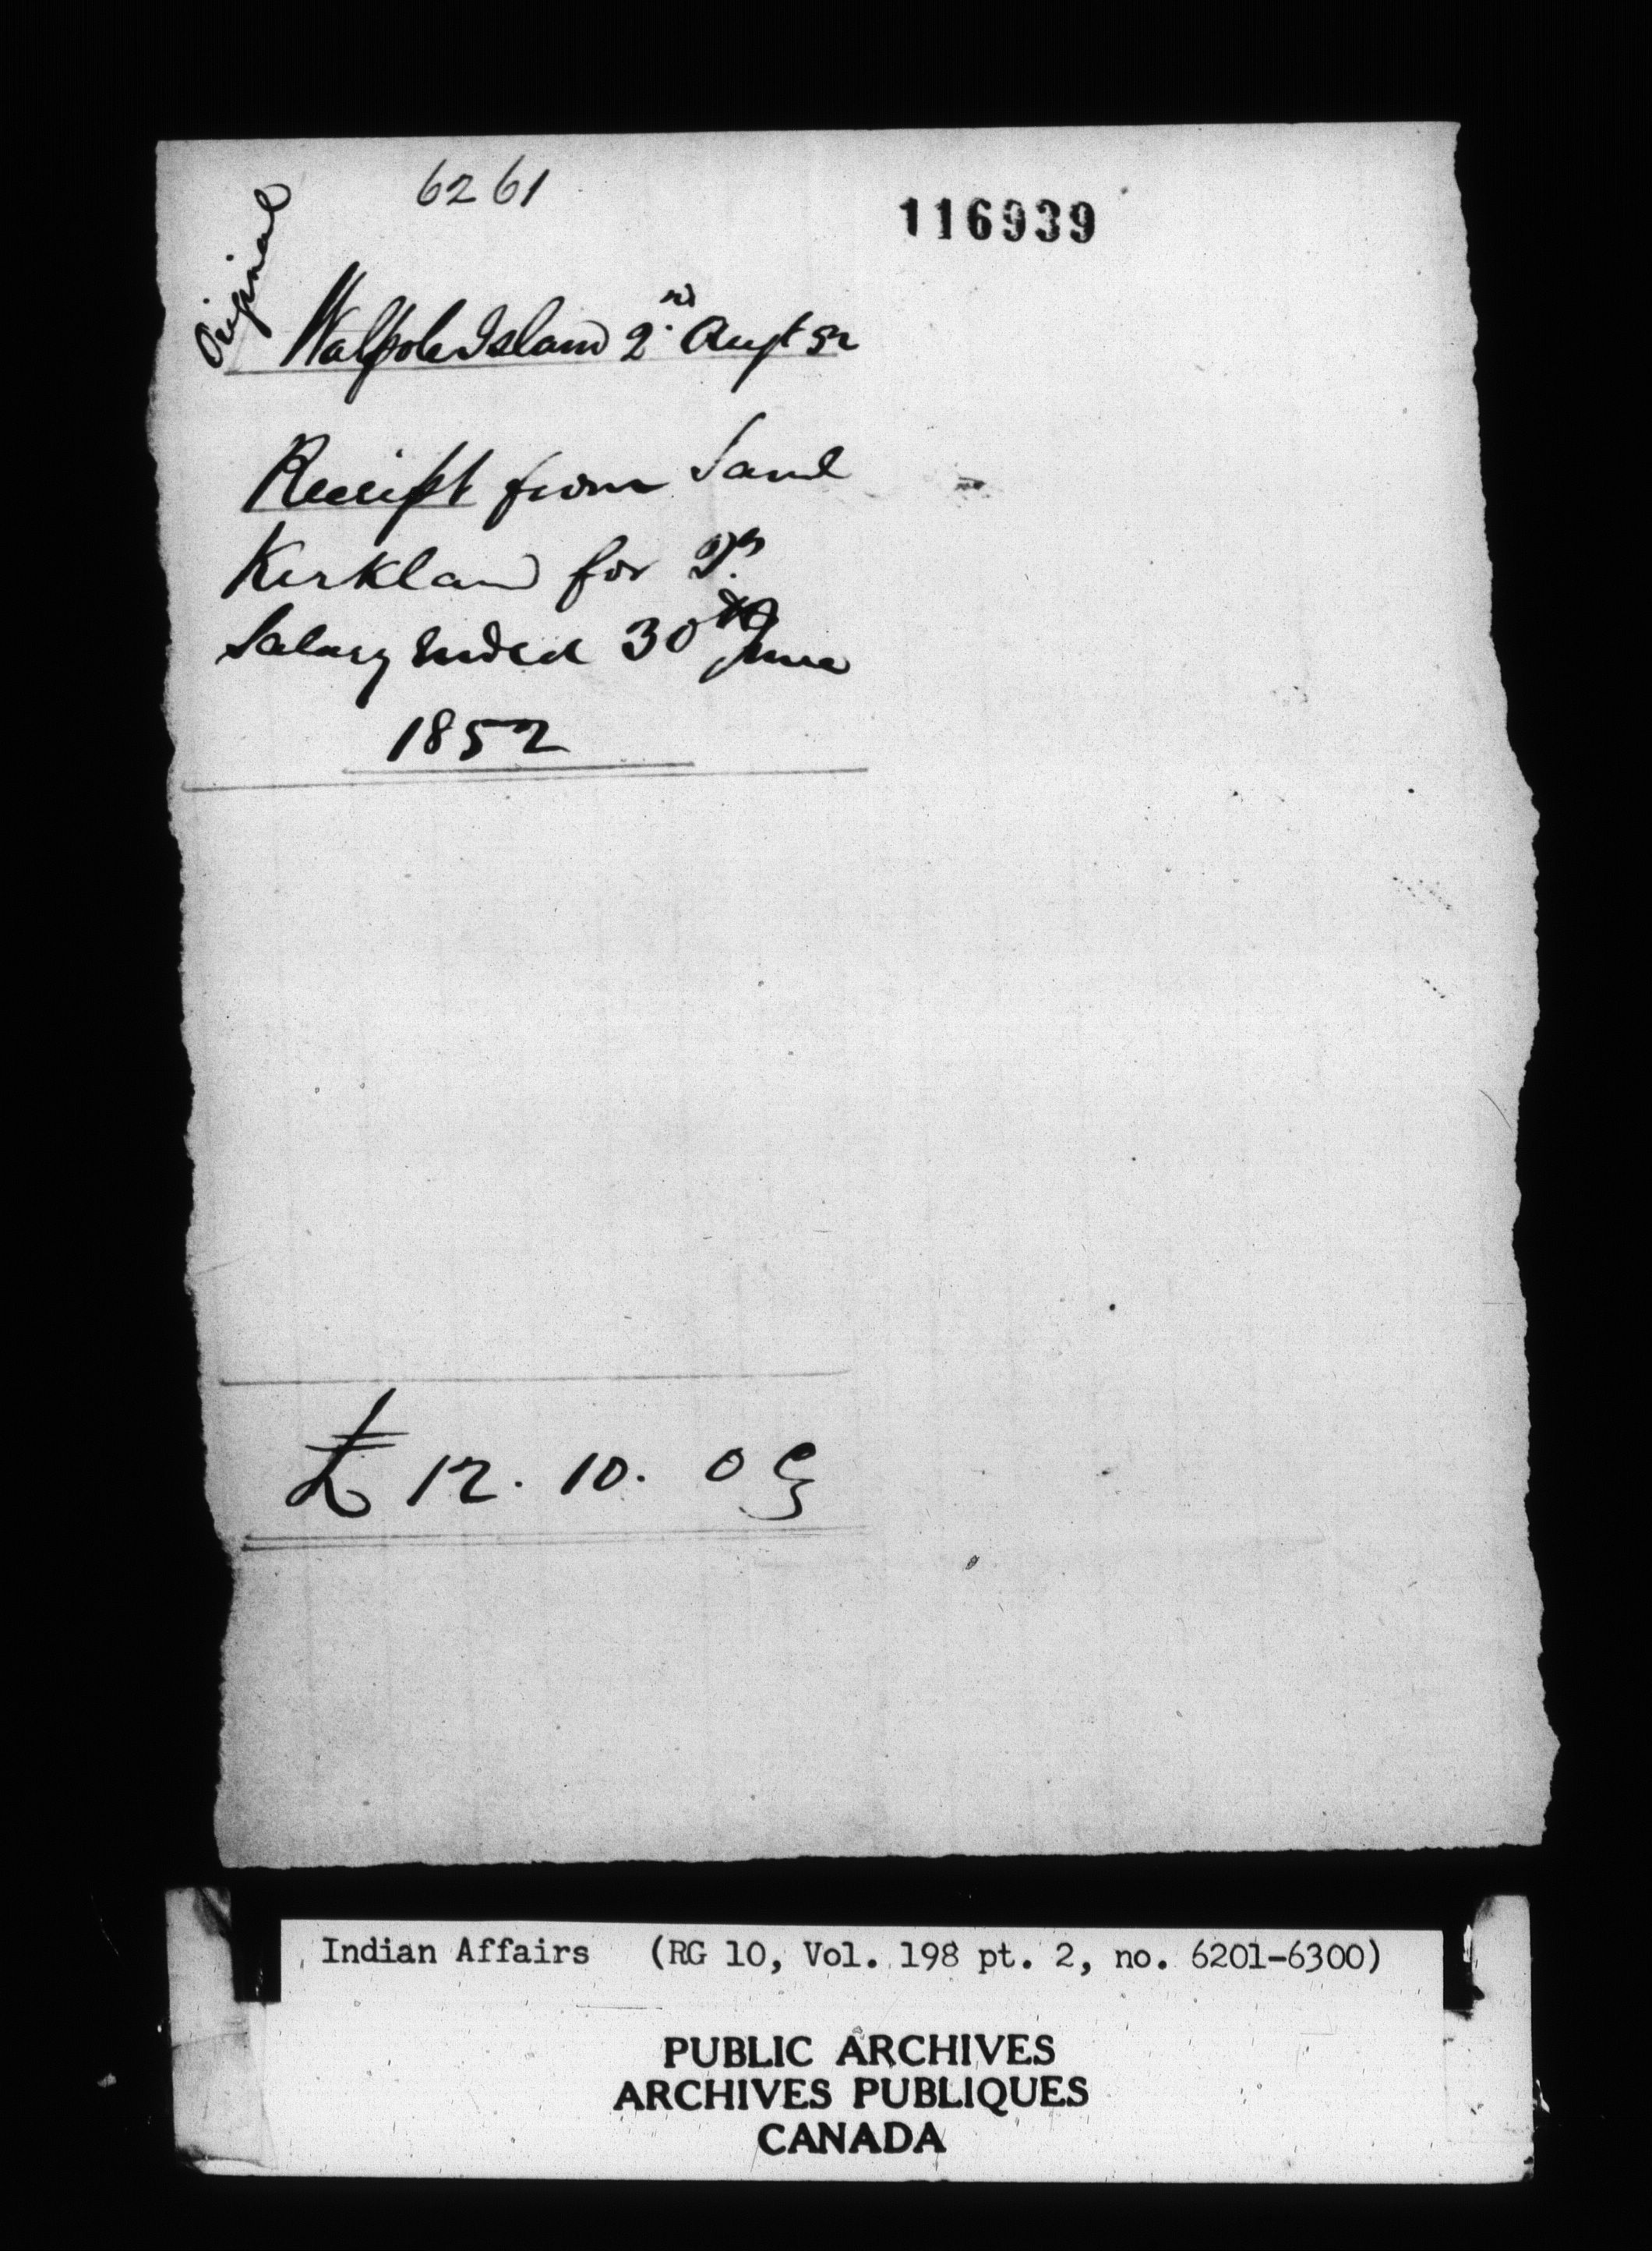 6261
116939
Original
Walpole Island 2nd Augt 52
Receipt from Saml
Kirkland for Qr
Salary Ended 30th June
1852
£ 12. 10. 0 Cy
Indian Affairs (RG 10, Vol. 198 pt. 2, no. 6201-6300)
PUBLIC ARCHIVES
ARCHIVES PUBLIQUES
CANADA